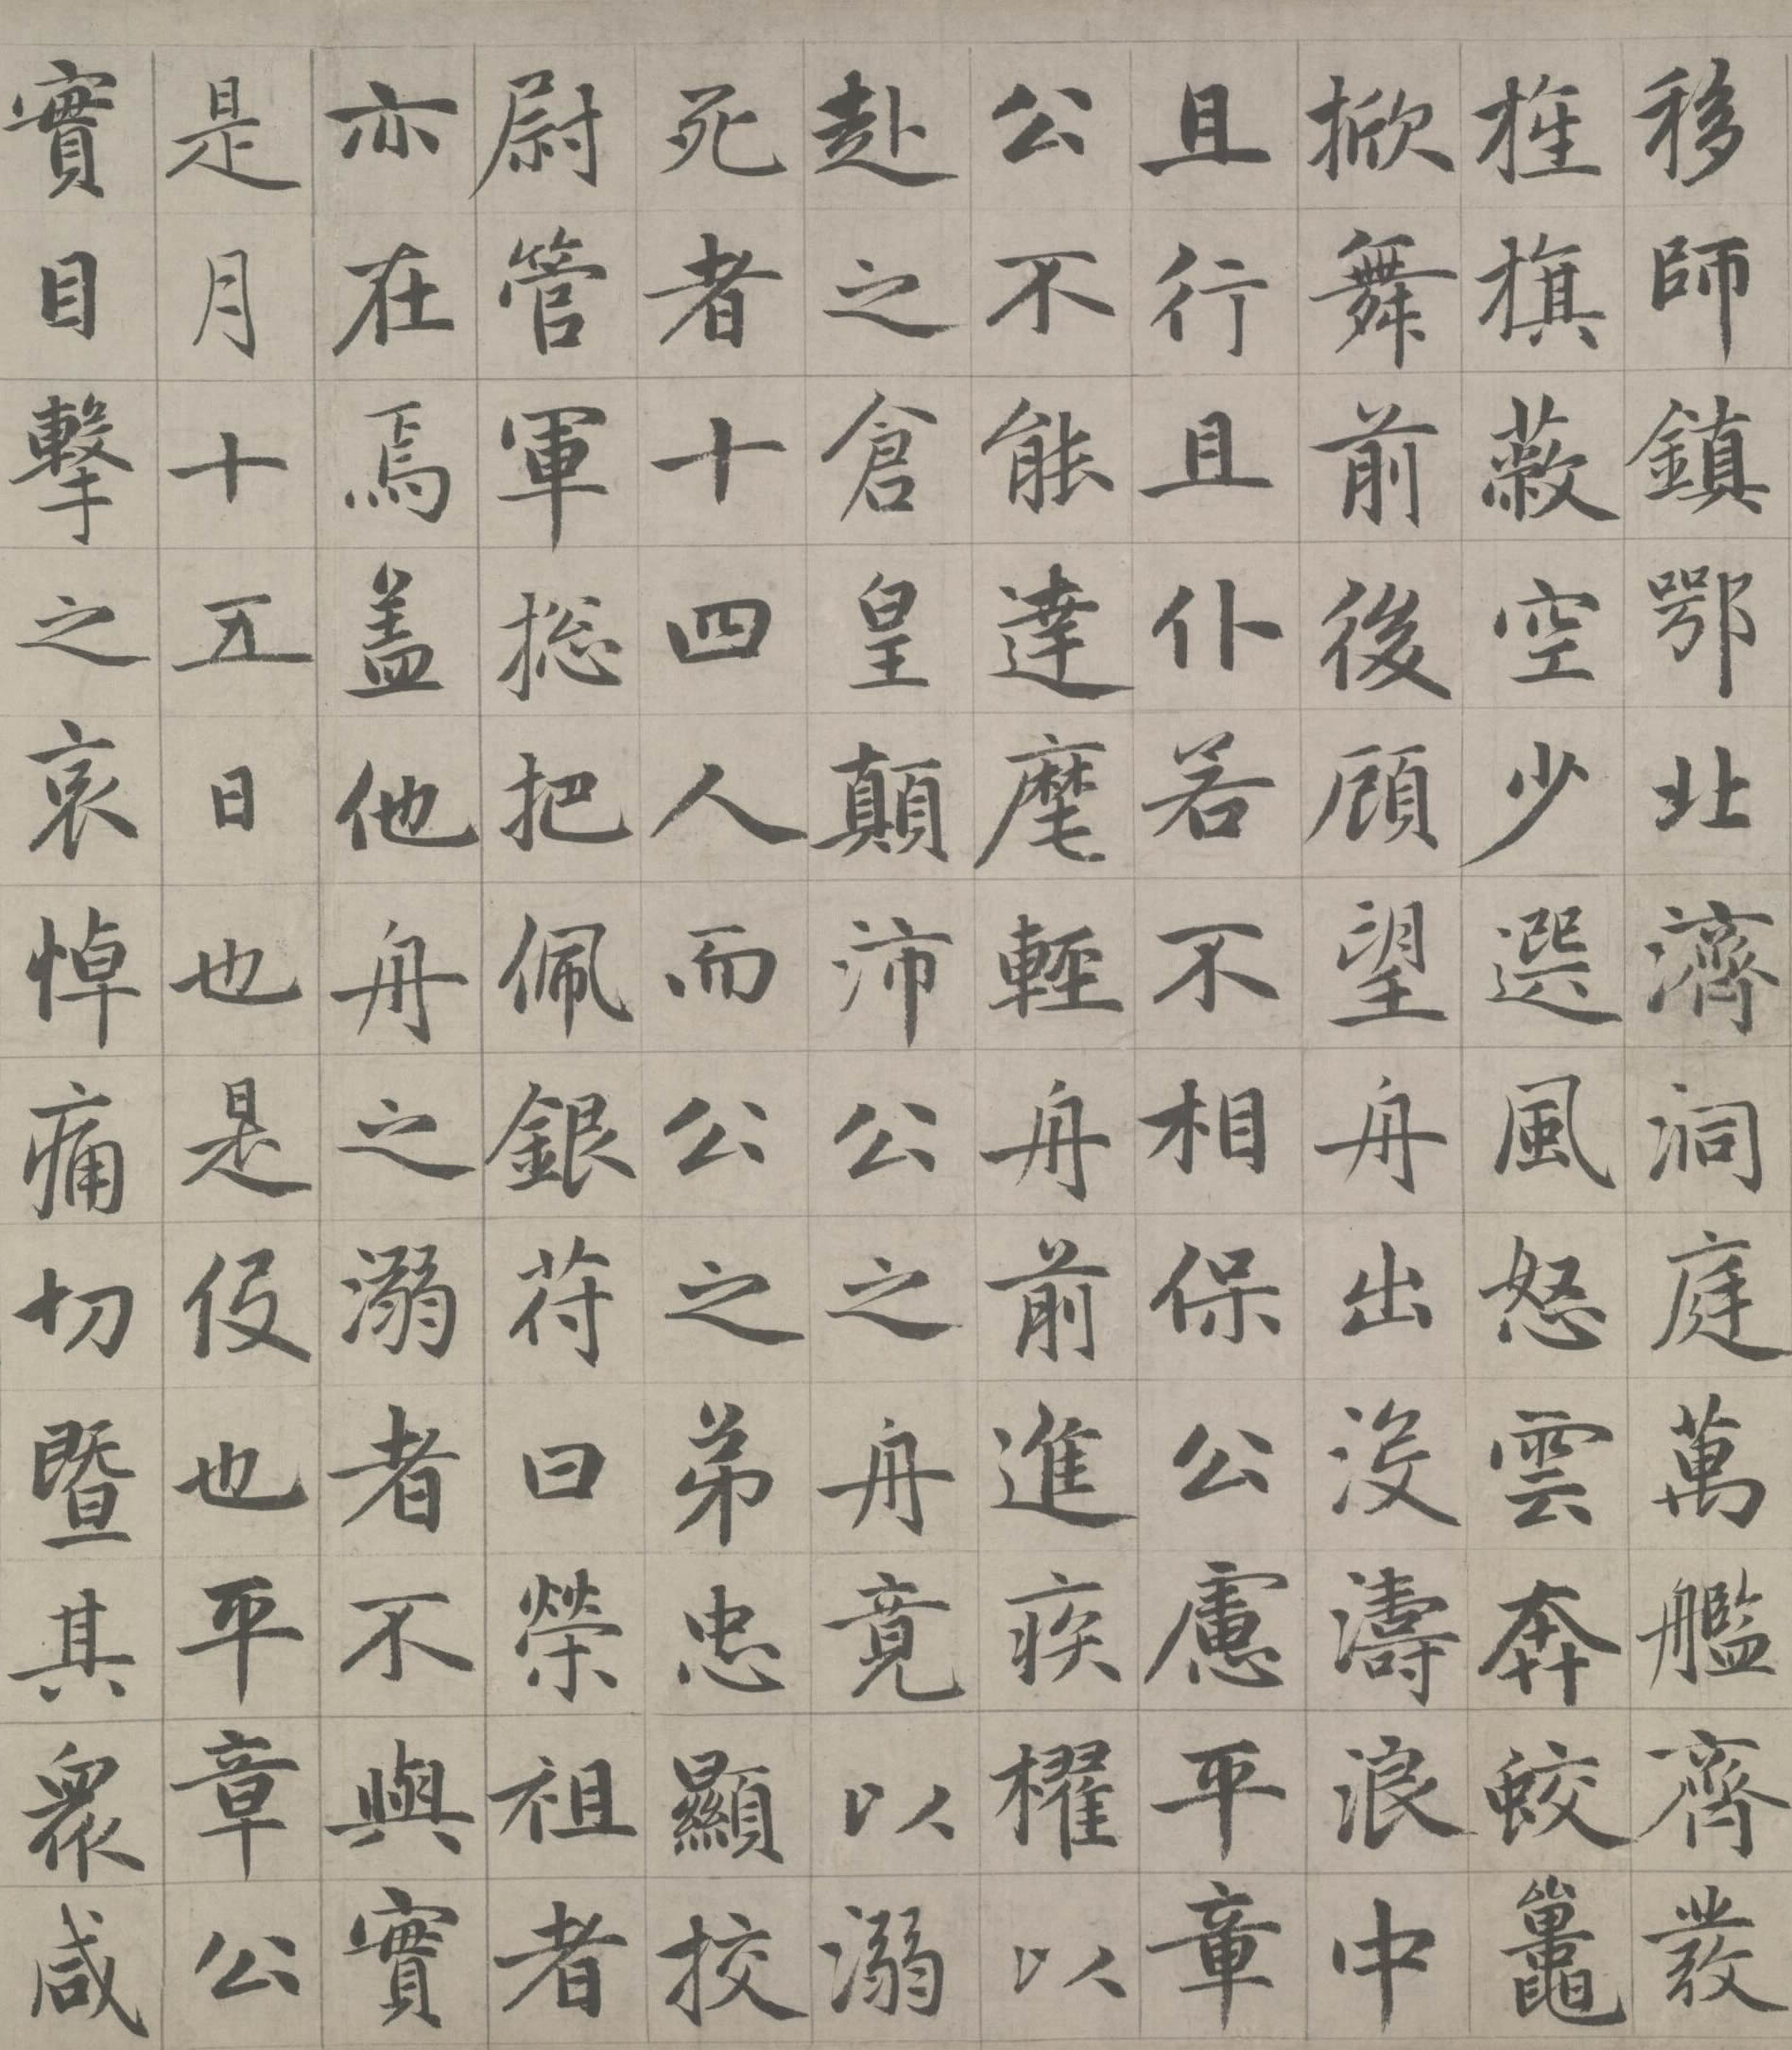 移師鎮鄂北濟洞庭萬艦齊發
旌旗蔽空少選風怒雲奔蛟鼉
掀舞前後顧望舟出沒濤浪中
且行且仆若不相保公慮平章
公不能達麾輕舟前進疾櫂以
赴之倉皇顛沛公之舟竟以溺
死者十四人而公之弟忠顯挍
尉管軍捴把佩銀苻曰榮祖者
亦在焉盖他舟之溺者不與實
是月十五日也是役也平章公
實目擊之哀悼痛切暨其衆咸